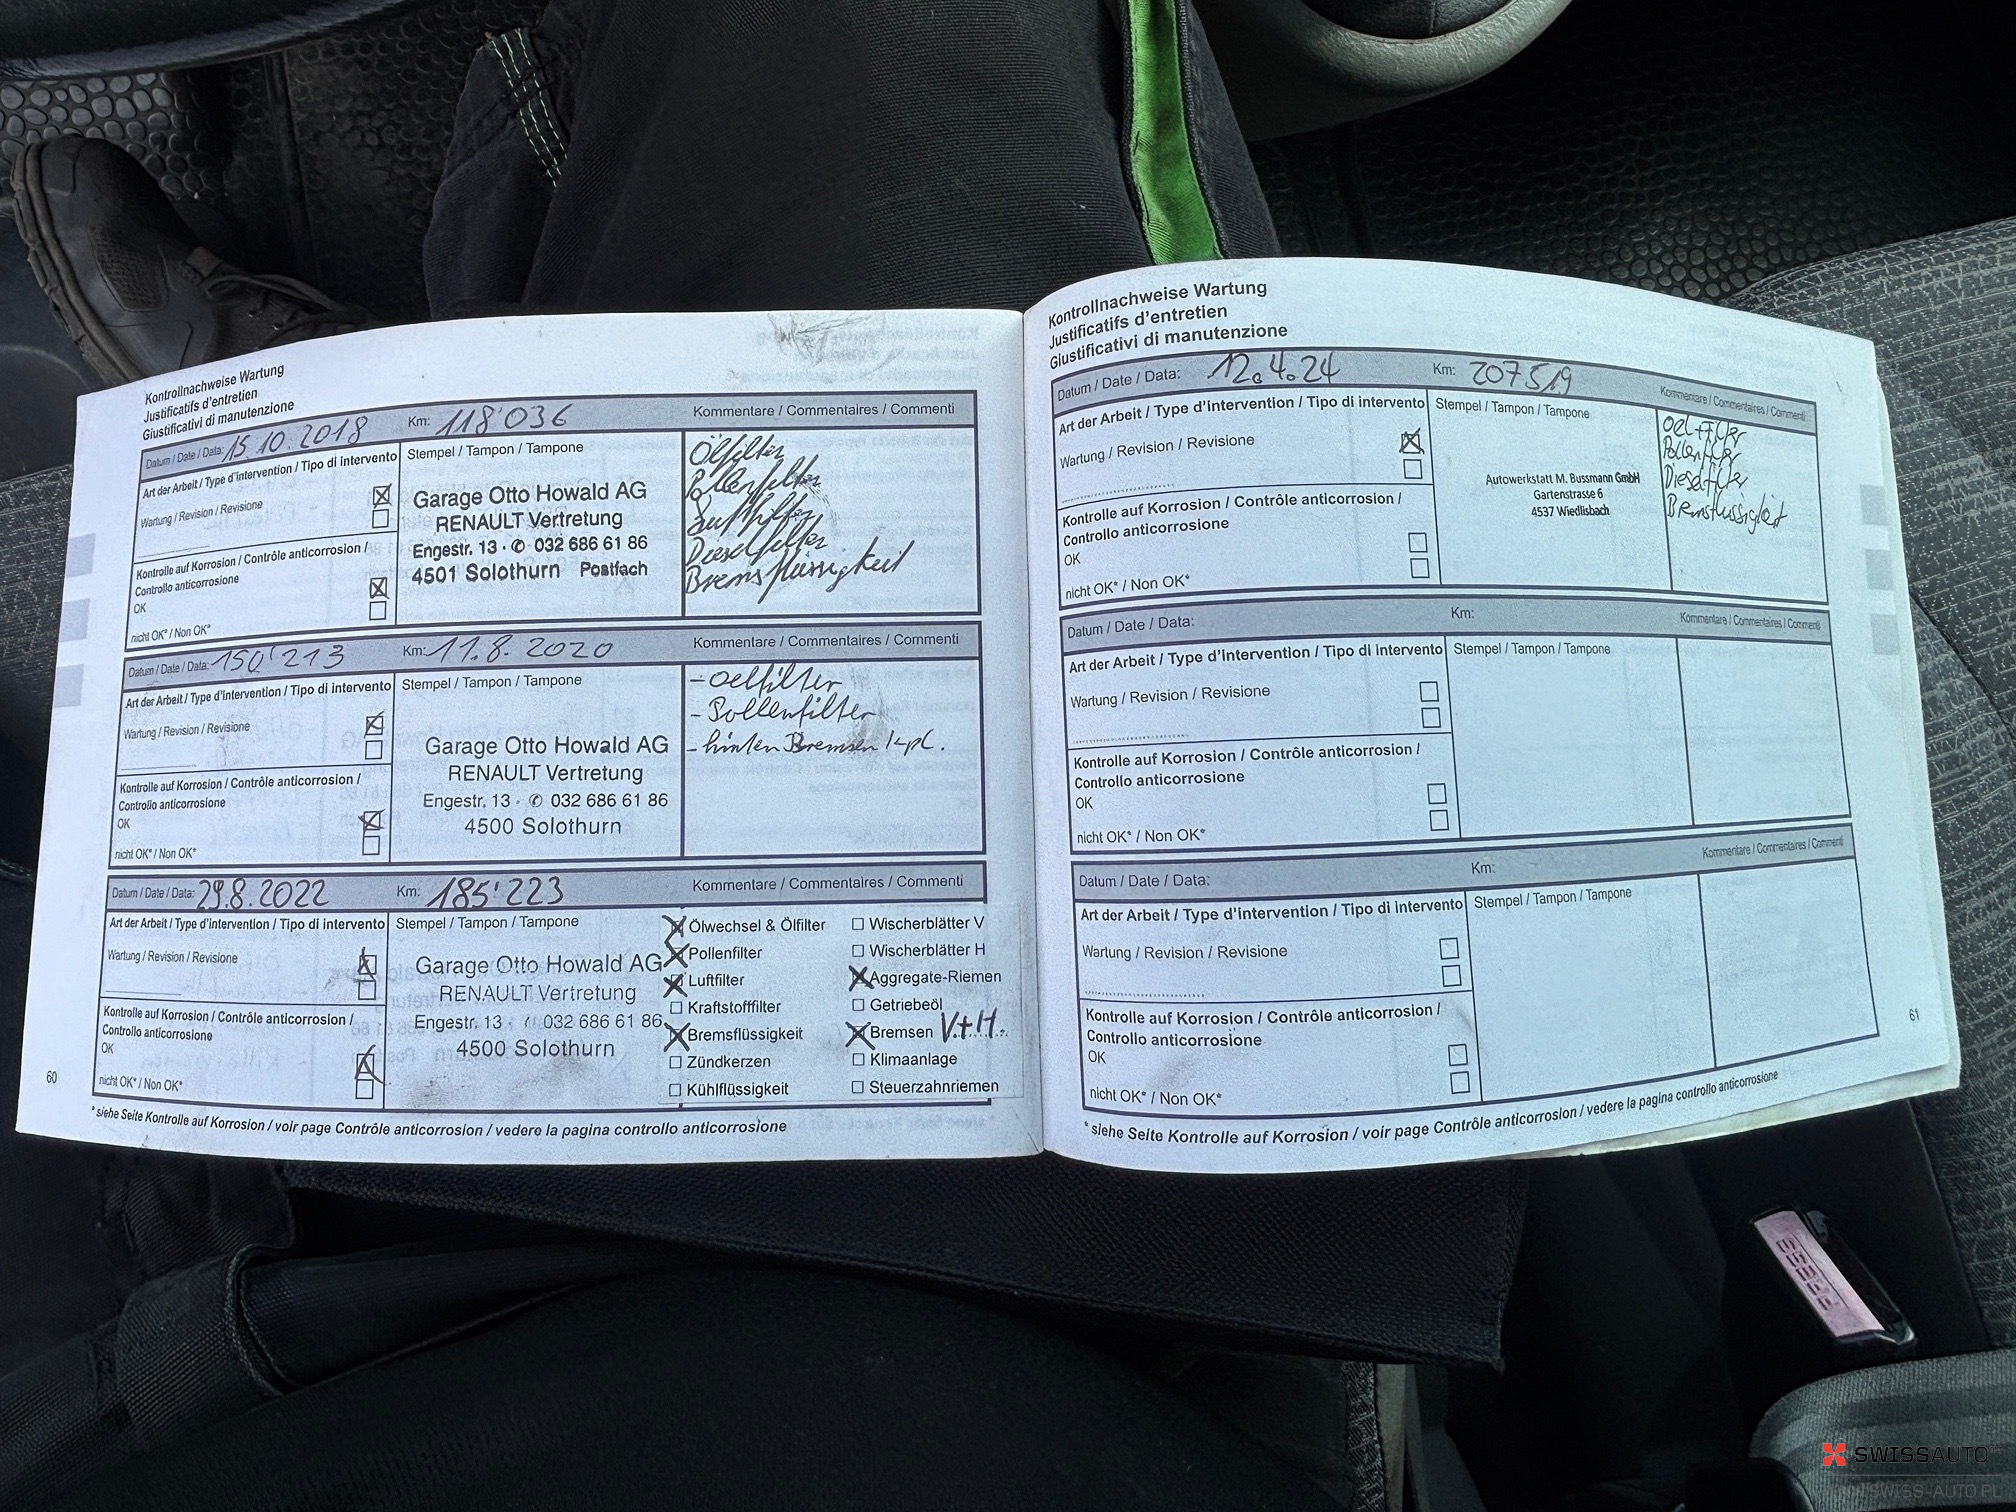 Kontrollnachweise Wartung
Justificatifs d'entretien
Giustificativi di manutenzione
Datum / Date / Data: 15.10.2018 Km: 118'036 Kommentare / Commentaires / Commenti
Art der Arbeit / Type d'intervention / Tipo di intervento
Wartung / Revision / Revisione
Kontrolle auf Korrosion / Contrôle anticorrosion /
Controllo anticorrosione
OK
nicht OK* / Non OK*
Stempel / Tampon / Tampone
Garage Otto Howald AG
RENAULT Vertretung
Engestr. 13 · ✆ 032 686 61 86
4501 Solothurn Postfach
Ölfilter
Pollenfilter
Luftfilter
Dieselfilter
Bremsflüssigkeit
Datum / Date / Data: 150'213 Km: 11.8.2020 Kommentare / Commentaires / Commenti
Art der Arbeit / Type d'intervention / Tipo di intervento
Wartung / Revision / Revisione
Kontrolle auf Korrosion / Contrôle anticorrosion /
Controllo anticorrosione
OK
nicht OK* / Non OK*
Stempel / Tampon / Tampone
Garage Otto Howald AG
RENAULT Vertretung
Engestr. 13 · ✆ 032 686 61 86
4500 Solothurn
- Oelfilter
- Pollenfilter
- hinten Bremsen kpl.
Datum / Date / Data: 29.8.2022 Km: 185'223 Kommentare / Commentaires / Commenti
Art der Arbeit / Type d'intervention / Tipo di intervento
Wartung / Revision / Revisione
Kontrolle auf Korrosion / Contrôle anticorrosion /
Controllo anticorrosione
OK
nicht OK* / Non OK*
Stempel / Tampon / Tampone
Garage Otto Howald AG
RENAULT Vertretung
Engestr. 13 · 032 686 61 86
4500 Solothurn
Ölwechsel & Ölfilter
Pollenfilter
Luftfilter
Kraftstofffilter
Bremsflüssigkeit
Zündkerzen
Kühlflüssigkeit
Wischerblätter V
Wischerblätter H
Aggregate-Riemen
Getriebeöl
Bremsen V+H.
Klimaanlage
Steuerzahnriemen
60
* siehe Seite Kontrolle auf Korrosion / voir page Contrôle anticorrosion / vedere la pagina controllo anticorrosione
Kontrollnachweise Wartung
Justificatifs d'entretien
Giustificativi di manutenzione
Datum / Date / Data: 12.4.24 Km: 207519 Kommentare / Commentaires / Commenti
Art der Arbeit / Type d'intervention / Tipo di intervento
Wartung / Revision / Revisione
Kontrolle auf Korrosion / Contrôle anticorrosion /
Controllo anticorrosione
OK
nicht OK* / Non OK*
Stempel / Tampon / Tampone
Autowerkstatt M. Bussmann GmbH
Gartenstrasse 6
4537 Wiedlisbach
Pollenfilter
Dieselfilter
Datum / Date / Data: Km: Kommentare / Commentaires / Commenti
Art der Arbeit / Type d'intervention / Tipo di intervento
Wartung / Revision / Revisione
Kontrolle auf Korrosion / Contrôle anticorrosion /
Controllo anticorrosione
OK
nicht OK* / Non OK*
Stempel / Tampon / Tampone
Datum / Date / Data: Km: Kommentare / Commentaires / Commenti
Art der Arbeit / Type d'intervention / Tipo di intervento
Wartung / Revision / Revisione
Kontrolle auf Korrosion / Contrôle anticorrosion /
Controllo anticorrosione
OK
nicht OK* / Non OK*
Stempel / Tampon / Tampone
61
* siehe Seite Kontrolle auf Korrosion / voir page Contrôle anticorrosion / vedere la pagina controllo anticorrosione
PRESS
SWISSAUTO
SWISS-AUTO.PL